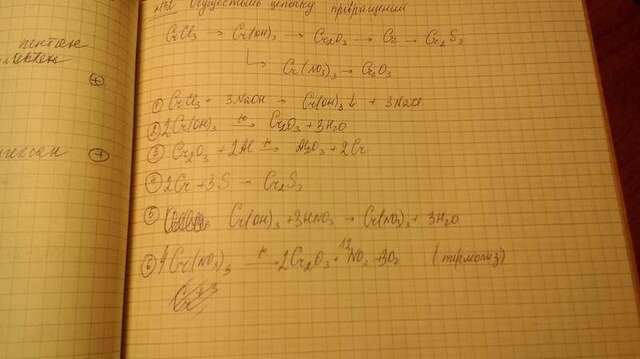 №2 Осуществить цепочку превращений
CrCl3 → Cr(OH)3 → Cr2O3 → Cr → Cr2S3
↳ Cr(NO3)3 → Cr2O3
пентен
① CrCl3 + 3NaOH → Cr(OH)3↓ + 3NaCl
② 2Cr(OH)3 t°→ Cr2O3 + 3H2O
③ Cr2O3 + 2Al t→ Al2O3 + 2Cr
④ 2Cr + 3S → Cr2S3
⑤ Cr(OH)3 + 3HNO3 → Cr(NO3)3 + 3H2O
⑥ 4Cr(NO3)3 t→ 2Cr2O3 + 12NO2 + 3O2 (термолиз)